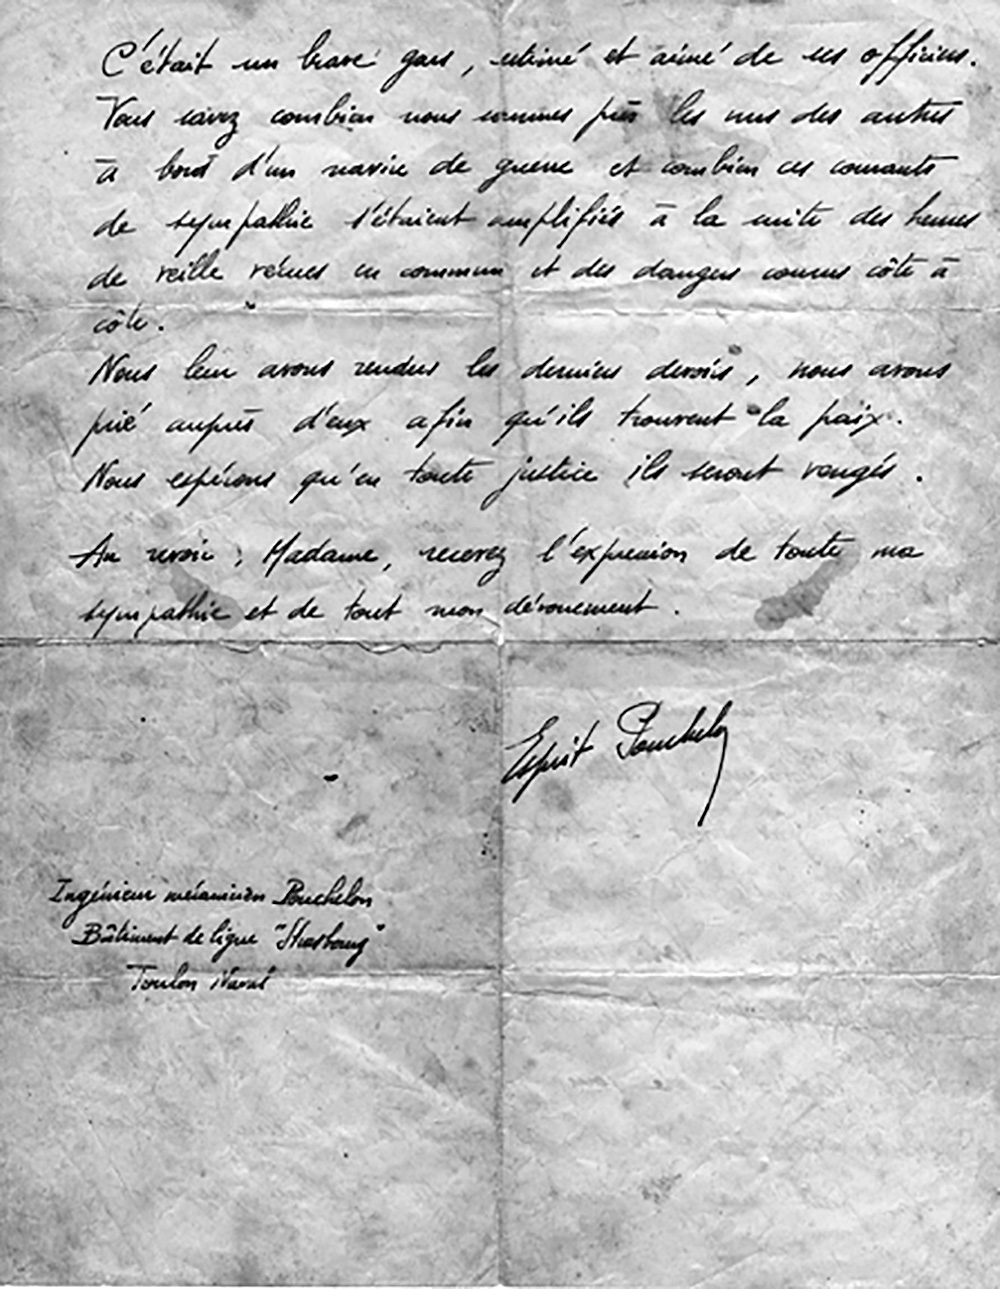 C'était un brave gars, estimé et aimé de ses officiers.
Vous savez combien nous sommes près les uns des autres
à bord d'un navire de guerre et combien ces courants
de sympathie s'étaient amplifiés à la suite des heures
de veille vécues en commun et des dangers courus côte à
côte.
Nous leur avons rendus les derniers devoirs, nous avons
prié auprès d'eux afin qu'ils trouvent la paix.
Nous espérons qu'en toute justice ils seront vengés.
Au revoir, Madame, recevez l'expression de toute ma
sympathie et de tout mon dévouement.
Esprit Pouchelon
Ingénieur mécanicien Pouchelon
Bâtiment de ligne "Strasbourg"
Toulon Naval